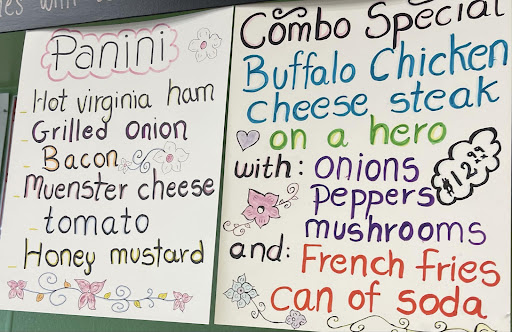 Panini
Hot virginia ham
Grilled onion
Bacon
Muenster cheese
tomato
Honey mustard
Combo Special
Buffalo Chicken
cheese steak
on a hero
with: onions
peppers
$12.99
mushrooms
and: French fries
can of soda